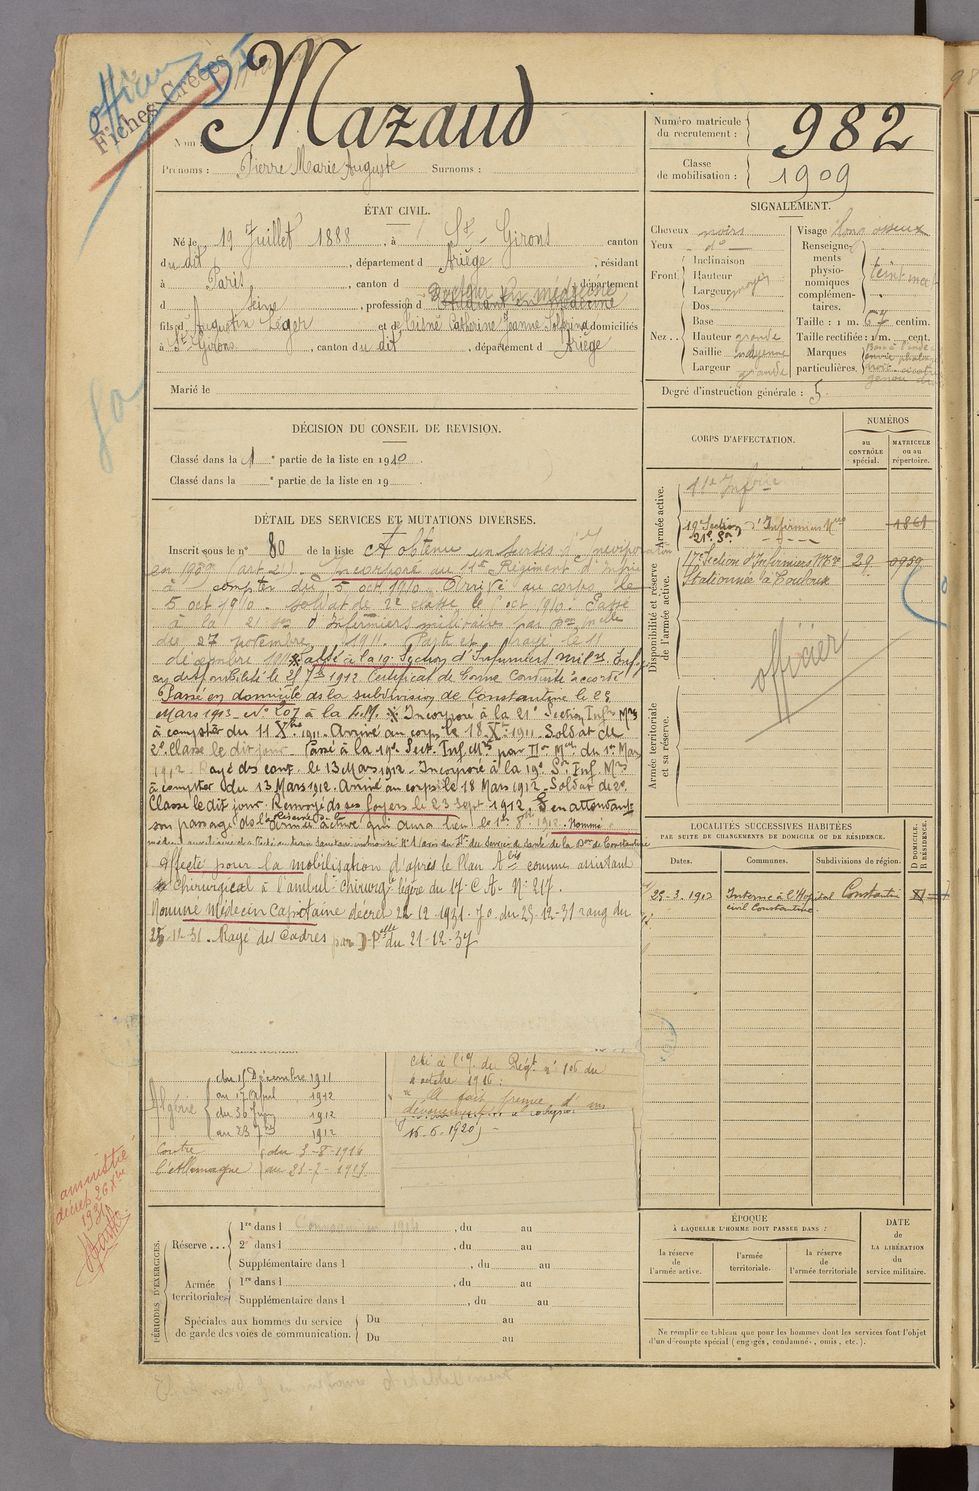 officier
Fiches Créées
Mazaud
Nom :
Prénoms : Pierre Marie Auguste Surnoms :
Numéro matricule du recrutement : 982
Classe de mobilisation : 1909
ÉTAT CIVIL.
Né le 19 Juillet 1888, à St-Girons canton
du dit, département d Ariège, résidant
à Paris, canton d département
d Seine, profession d Docteur en médecine Étudiant en Médecine
fils d' Augustin Léger et de Catherine Jeanne domiciliés
à St-Girons, canton du dit, département d Ariège
Marié le
SIGNALEMENT.
Cheveux noirs
Yeux do
Front Inclinaison
Hauteur
Largeur moyen
Nez Dos
Base
Hauteur grande
Saillie moyenne
Largeur grande
Visage long osseux
Renseignements physionomiques complémentaires. teint mat
Taille : 1 m. 67 centim.
Taille rectifiée : 1 m. cent.
Marques particulières.
Degré d'instruction générale : 5
DÉCISION DU CONSEIL DE REVISION.
Classé dans la 1e partie de la liste en 1910
Classé dans la e partie de la liste en 19
CORPS D'AFFECTATION.
NUMÉROS
au CONTRÔLE spécial.
MATRICULE ou au répertoire.
Armée active.
19e Section d'Infirmiers Mres 1861
21e Son
Disponibilité et réserve de l'armée active.
17e Section d'Infirmiers Mres 29 0989
Stationnée à Toulouse
officier
Armée territoriale et sa réserve.
DÉTAIL DES SERVICES ET MUTATIONS DIVERSES.
Inscrit sous le n° 80 de la liste A obtenu un sursis d'incorporation
en 1909 (art. 21). Incorporé au 11e Régiment d'infrie
à compter du 5 oct 1910. Arrivé au corps le
5 oct 1910. Soldat de 2e classe le oct 1910. Passé
à la 21 son d'Infirmiers militaires par
du 27 novembre 1911. Parti et rayé le 11
décembre 1911. Passé à la 19e Section d'Infirmiers Milres
en disponibilité le 7bre 1912 Certificat de bonne Conduite accordé
Passé en domicile ds la subdivision de Constantine le 29
Mars 1913 - No 207 à la Incorporé à la 21e Section Infrs Mres
à compter du 11 Xbre 1911. Arrivé au corps le 18 Xbre 1911. Soldat de
2e Classe le dit jour. Passé à la 19e Sect. Inf. Mres par Mel du 1er Mars
1912. Rayé des cont. le 13 Mars 1912. Incorporé à la 19e Son Inf. Mres
à compter du 13 Mars 1912. Arrivé au corps le 18 Mars 1912. Soldat de 2e
Classe le dit jour. Renvoyé ds ses foyers le 23 Sept 1912, en attendant
son passage ds la Réserve de l'armée active qui aura lieu le 1er 8bre 1912. Nommé
Affecté pour la mobilisation d'après le Plan A bis comme assistant
Chirurgical à l'ambulce Chirurgle légère du 17e C A - No 217.
Nommé Médecin Capitaine décret 22-12-1931 J.O. du 25-12-31 rang du
25-12-31. Rayé des Cadres par D. Pelle du 21-12-37
LOCALITÉS SUCCESSIVES HABITÉES
PAR SUITE DE CHANGEMENT DE DOMICILE OU DE RÉSIDENCE.
Dates. Communes. Subdivisions de région.
D DOMICILE. R RÉSIDENCE.
29-3-1913 Interne à l'Hôpital civil Constantine. Constantine
CAMPAGNES.
Algérie du 11 Décembre 1911
au 17 April 1912
du 30 Juin 1912
au 23 7bre 1912
Contre l'Allemagne du 3-8-1914
au 23-7-1919
Cité à l'O/ du Régt no 106 du
octobre 1916 :
" A fait preuve d'un
dévouement
16.6.1920)
amnistié
décret 26 Xbre
1931
PÉRIODES D'EXERCICES.
Réserve 1re dans l , du au
2e dans l , du au
Supplémentaire dans l , du au
Armée territoriale 1re dans l , du au
Supplémentaire dans l , du au
Spéciales aux hommes du service de garde des voies de communication. Du au
Du au
ÉPOQUE
À LAQUELLE L'HOMME DOIT PASSER DANS :
la réserve de l'armée active.
l'armée territoriale.
la réserve de l'armée territoriale
DATE de LA LIBÉRATION du service militaire.
Ne remplir ce tableau que pour les hommes dont les services font l'objet
d'un décompte spécial (engagés, condamnés, omis, etc.).